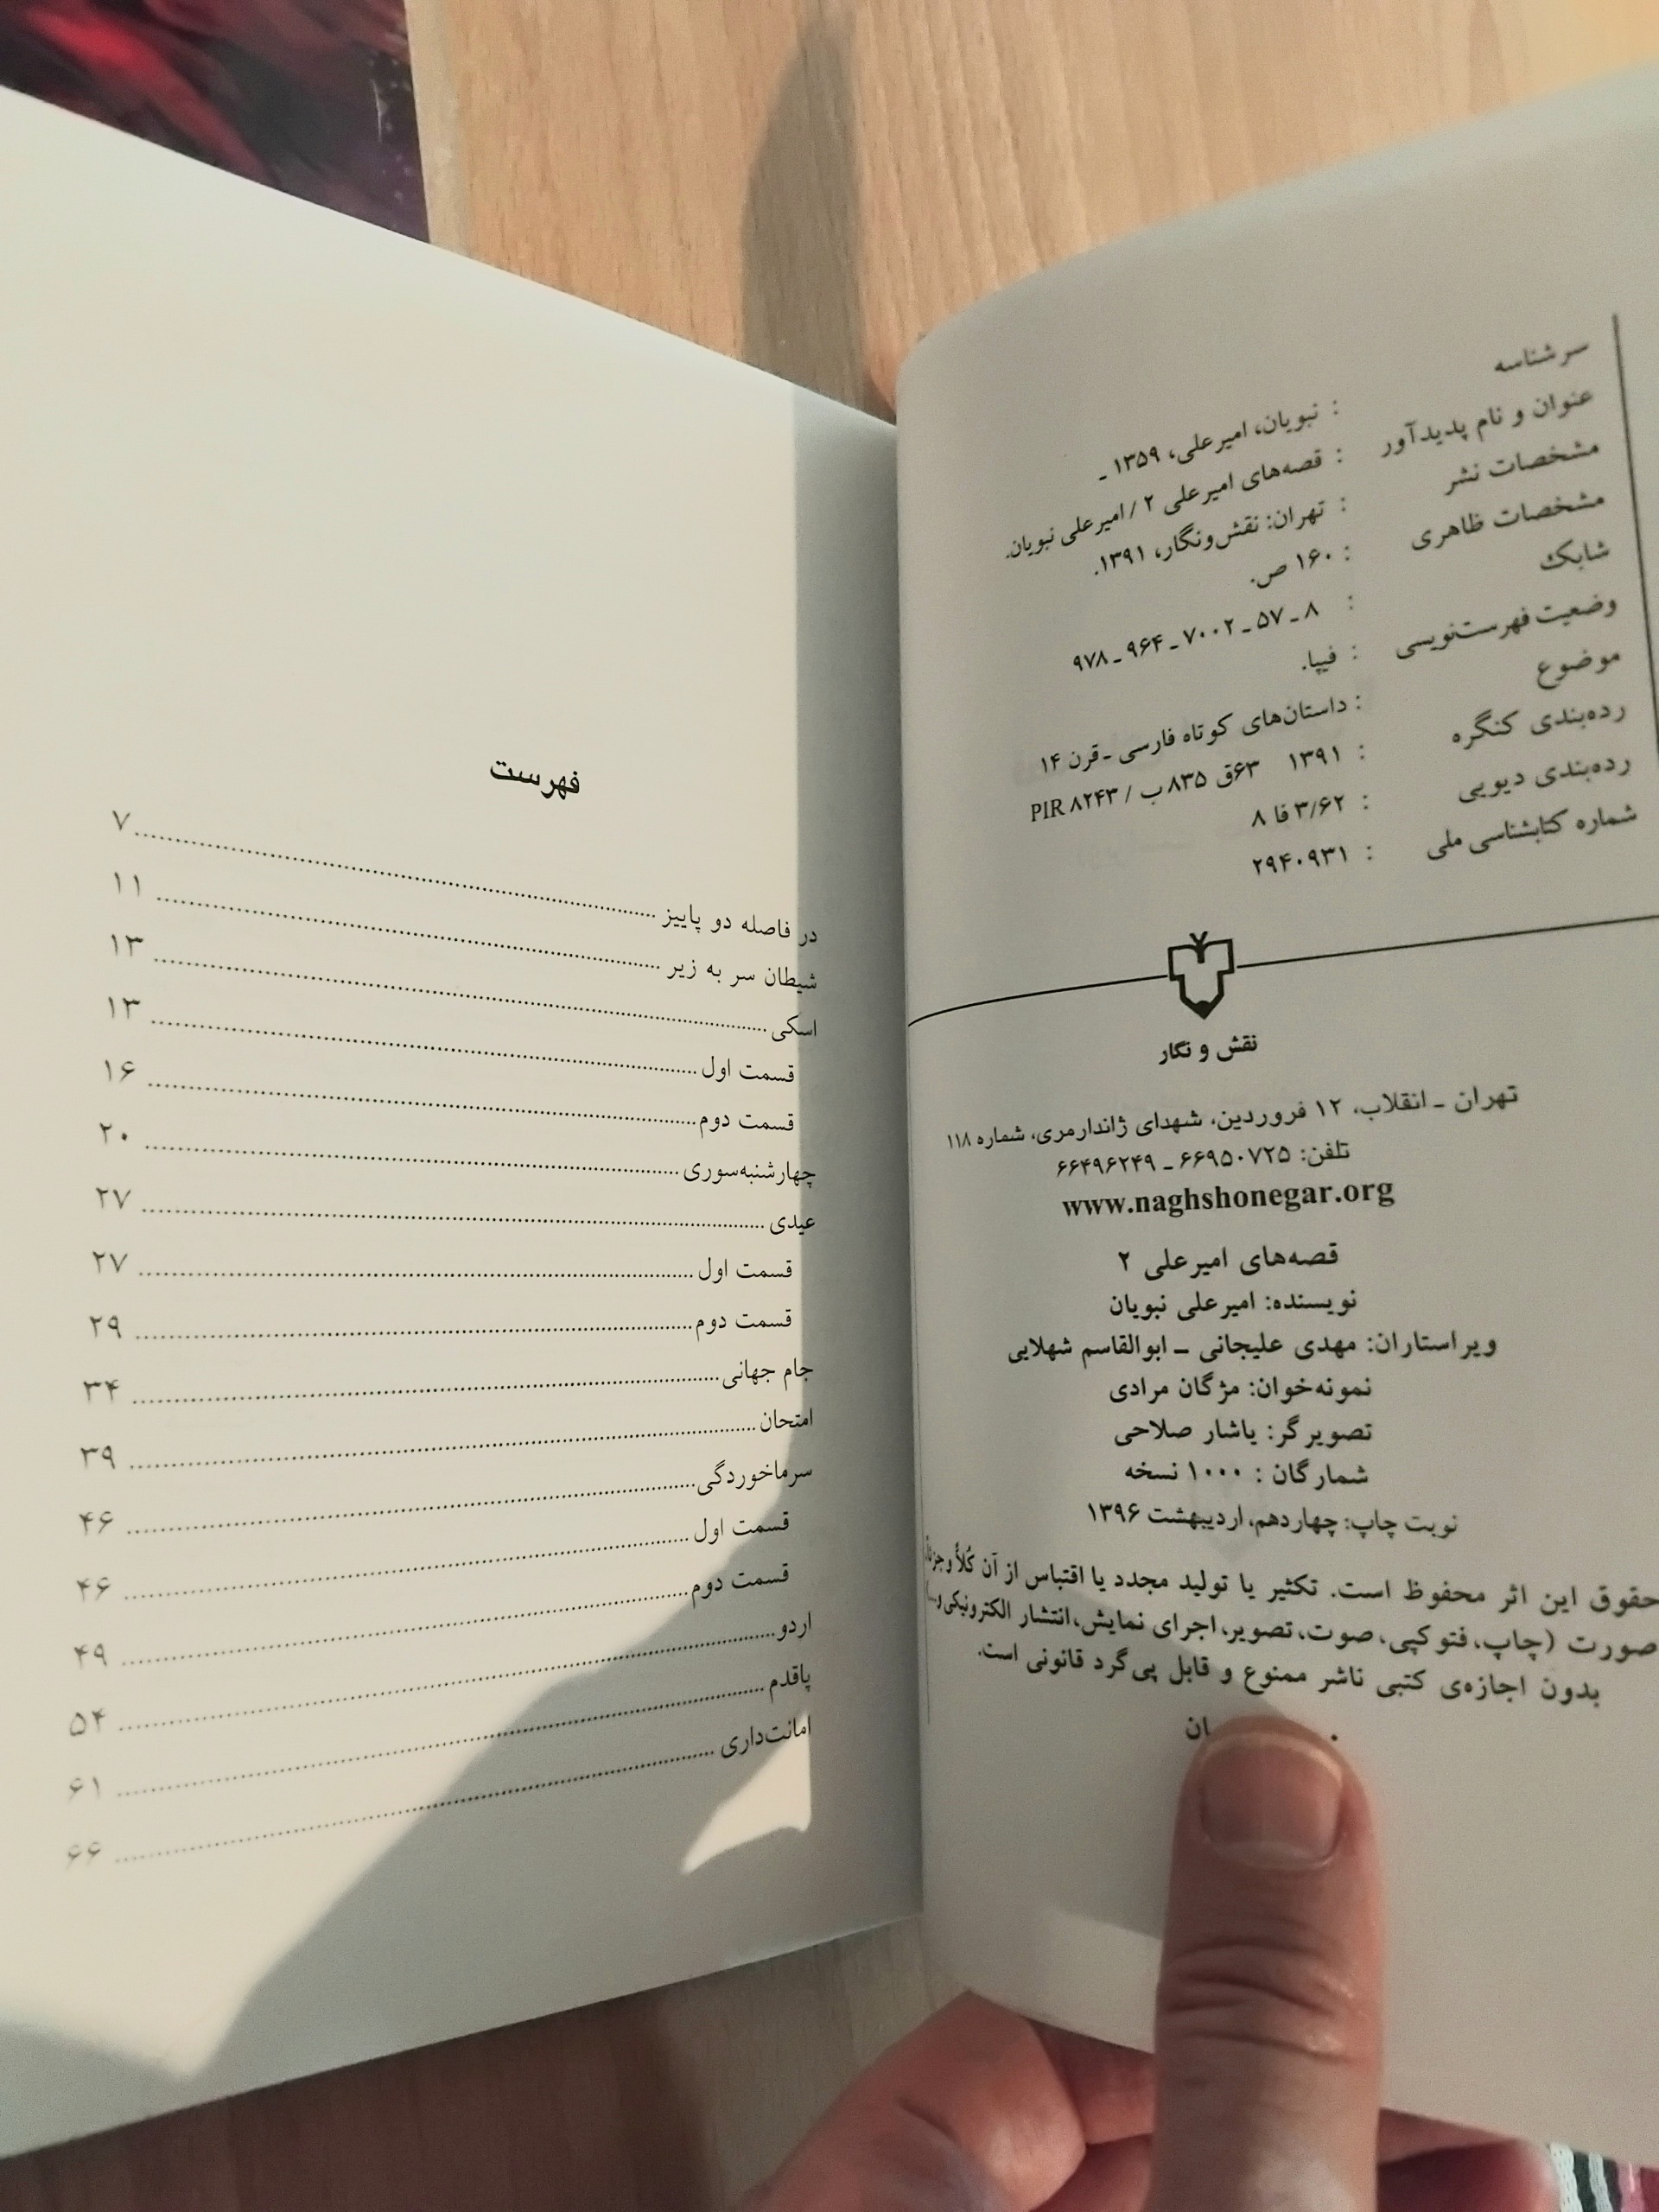 سرشناسه : نبویان، امیرعلی، ۱۳۵۹ ـ
عنوان و نام پدیدآور : قصه‌های امیرعلی ۲ / امیرعلی نبویان.
مشخصات نشر : تهران: نقش‌ونگار، ۱۳۹۱.
مشخصات ظاهری : ۱۶۰ ص.
شابک : ۸ ـ ۵۷ ـ ۷۰۰۲ ـ ۹۶۴ ـ ۹۷۸
وضعیت فهرست‌نویسی : فیپا.
موضوع : داستان‌های کوتاه فارسی ـ قرن ۱۴
رده‌بندی کنگره : ۱۳۹۱ ۶۳ق ۸۳۵ب / PIR ۸۲۴۳
رده‌بندی دیویی : ۳/۶۲ فا ۸
شماره کتابشناسی ملی : ۲۹۴۰۹۳۱
نقش و نگار
تهران ـ انقلاب، ۱۲ فروردین، شهدای ژاندارمری، شماره ۱۱۸
تلفن: ۶۶۹۵۰۷۲۵ ـ ۶۶۴۹۶۲۴۹
www.naghshonegar.org
قصه‌های امیرعلی ۲
نویسنده: امیرعلی نبویان
ویراستاران: مهدی علیجانی ـ ابوالقاسم شهلایی
نمونه‌خوان: مژگان مرادی
تصویرگر: یاشار صلاحی
شمارگان : ۱۰۰۰ نسخه
نوبت چاپ: چهاردهم، اردیبهشت ۱۳۹۶
حقوق این اثر محفوظ است. تکثیر یا تولید مجدد یا اقتباس از آن کُلاً و
صورت (چاپ، فتوکپی، صوت، تصویر، اجرای نمایش، انتشار الکترونیکی و...)
بدون اجازه‌ی کتبی ناشر ممنوع و قابل پی‌گرد قانونی است.
فهرست
در فاصله دو پاییز ۷
شیطان سر به زیر ۱۱
اسکی ۱۳
قسمت اول ۱۳
قسمت دوم ۱۶
چهارشنبه‌سوری ۲۰
عیدی ۲۷
قسمت اول ۲۷
قسمت دوم ۲۹
جام جهانی ۳۴
امتحان ۳۹
سرماخوردگی ۴۶
قسمت اول ۴۶
قسمت دوم ۴۹
اردو ۵۴
پاقدم ۶۱
امانت‌داری ۶۶